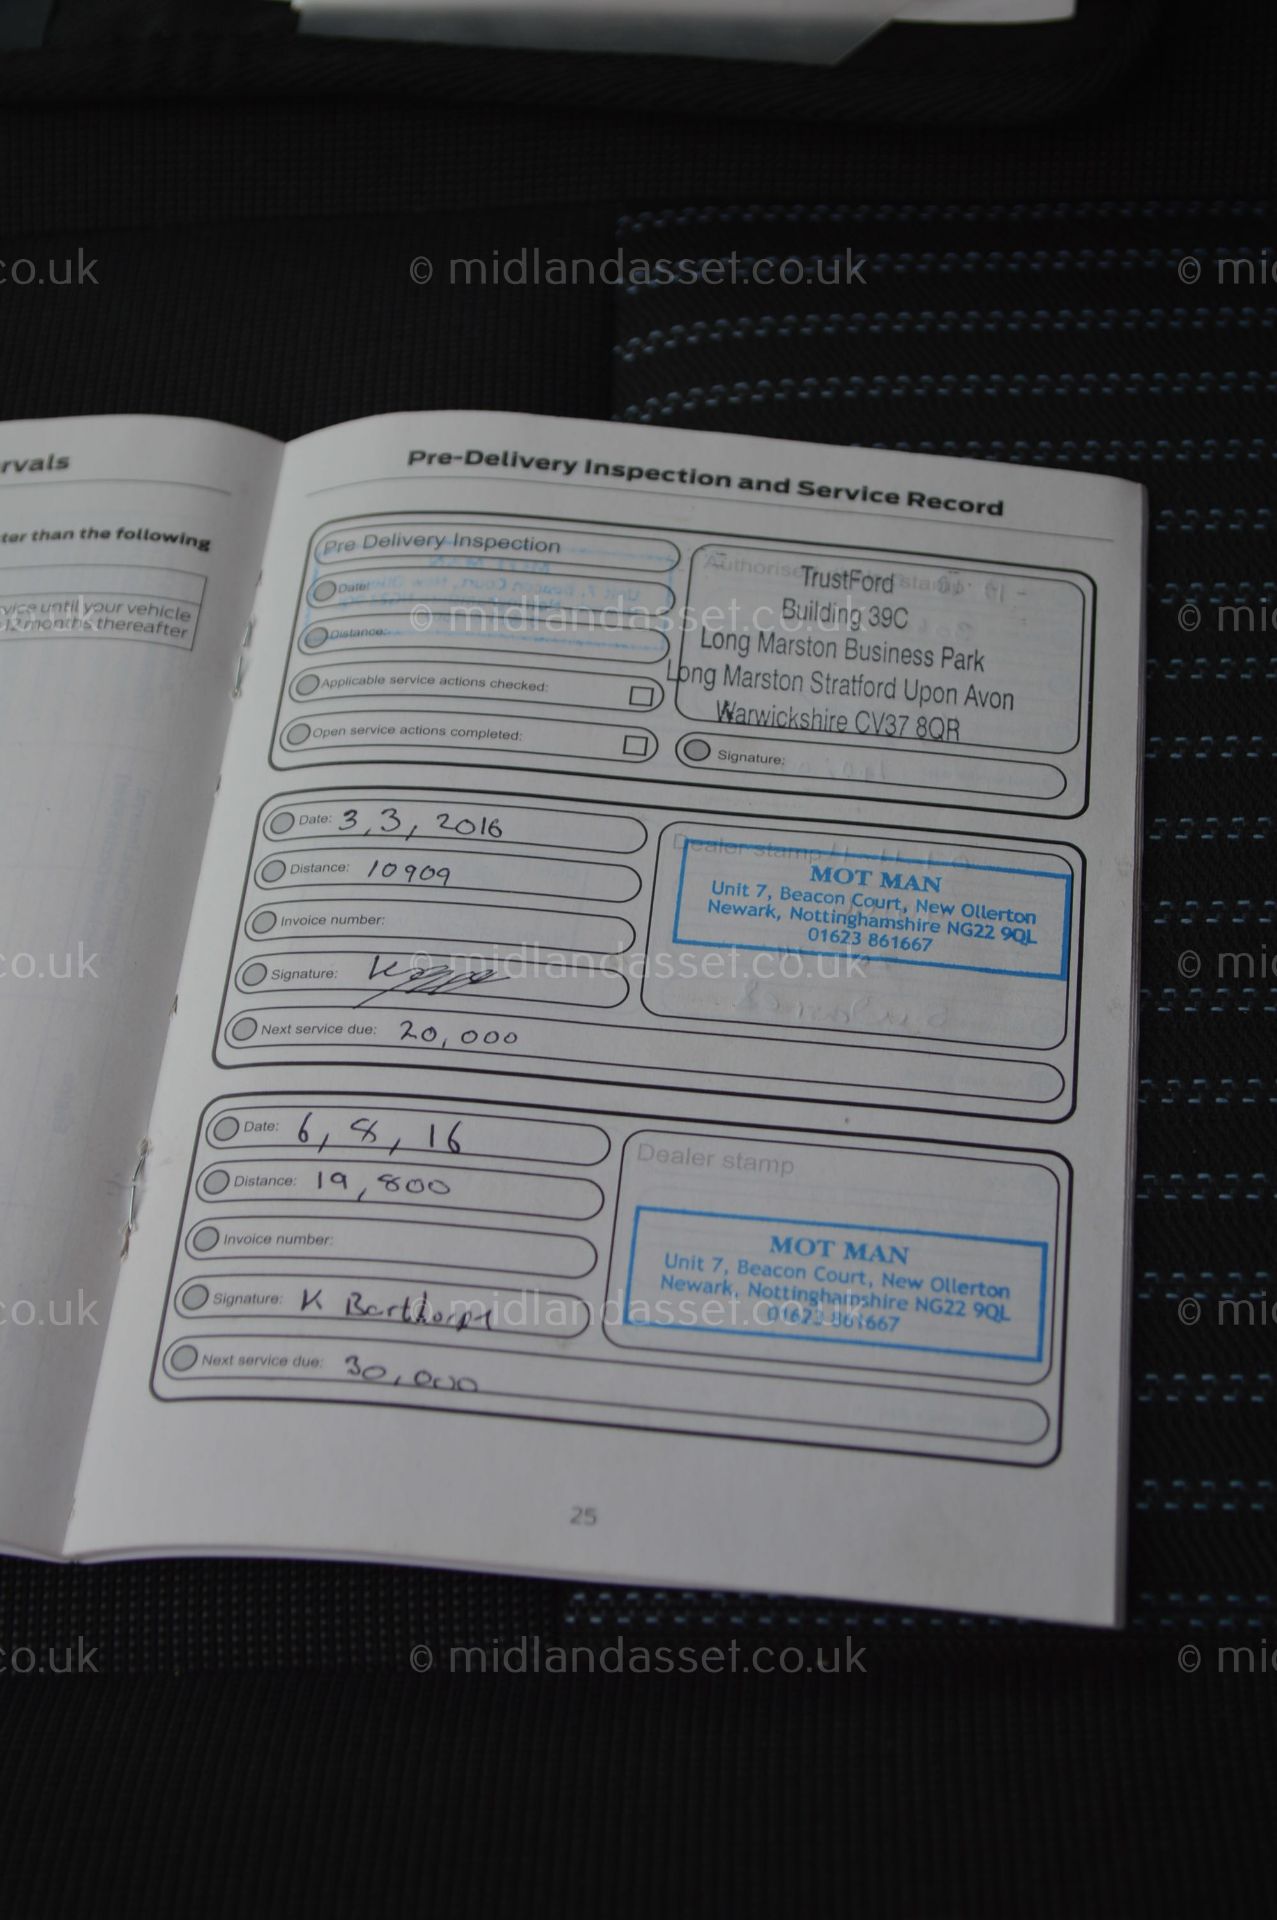 rvals
ter than the following
vice until your vehicle
12 months thereafter
Pre-Delivery Inspection and Service Record
Pre Delivery Inspection
Date:
Distance:
Applicable service actions checked:
Open service actions completed:
TrustFord
Building 39C
Long Marston Business Park
Long Marston Stratford Upon Avon
Warwickshire CV37 8QR
Signature:
Date: 3,3,2016
Distance: 10909
Invoice number:
Signature:
Next service due: 20,000
Dealer stamp
MOT MAN
Unit 7, Beacon Court, New Ollerton
Newark, Nottinghamshire NG22 9QL
01623 861667
Date: 6,8,16
Distance: 19,800
Invoice number:
Signature: K Barthorpe
Next service due: 30,000
Dealer stamp
MOT MAN
Unit 7, Beacon Court, New Ollerton
Newark, Nottinghamshire NG22 9QL
01623 861667
25
co.uk © midlandasset.co.uk © mi
co.uk © midlandasset.co.uk © mi
co.uk © midlandasset.co.uk © mi
co.uk © midlandasset.co.uk © mi
co.uk © midlandasset.co.uk © mi